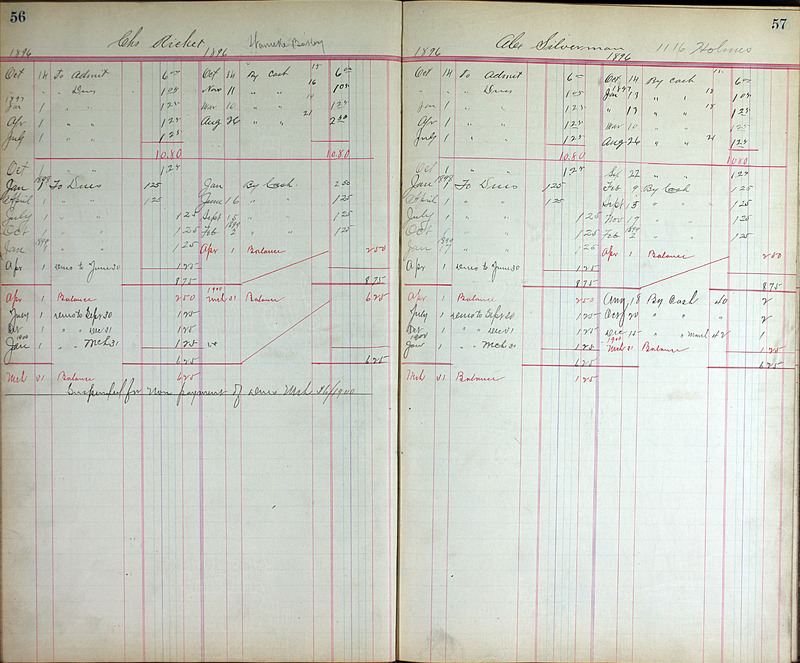 56
Chs Ricket
1896 1896
Oct 14 To Admit 6 00 Oct 14 By Cash 15 6 00
" " " Dues 1 05 Nov 11 " " 16 1 05
1897
Jan 1 " " 1 25 Mar 10 " " 1 25
Apr 1 " " 1 25 Aug 26 " " 21 2 50
July 1 " " 1 25
10.80 10.80
Oct 1 " 1 25
1898
Jan 1 To Dues 1 25 Jan By Cash 2 50
April 1 " " 1 25 June 16 " " 1 25
July 1 " " 1 25 Sept 15 " " 1 25
Oct 1 " " 1 25 Feb 2 " " 1 25
1899
Jan " " 1 25 Apr 1 Balance 2 50
Apr 1 Dues to June 30 1 25
8 75 8 75
1900
Apr 1 Balance 2 50 Mch 31 Balance 6 25
July 1 Dues to Sept 30 1 25
Oct 1 " " Dec 31 1 25
1900
Jan 1 " " Mch 31 1 25
6 25 6 25
Mch 31 Balance 6 25
Suspended for non payment of Dues Mch 31/1900
57
Alex Silverman 1116 Holmes
1896 1896
Oct 14 To Admit 6 00 Oct 14 By Cash 15 6 00
" " " Dues 1 05 Jan 13 " " 18 1 05
1897
Jan 1 " " 1 25 " 13 " " 18 1 25
Apr 1 " " 1 25 Mar 10 " " 1 25
July 1 " " 1 25 Aug 26 " " 21 1 25
10.80 10.80
Oct 1 " " 1 25 22 " " 1 25
1898
Jan 1 To Dues 1 25 Feb 9 By Cash 1 25
April 1 " " 1 25 Sept 5 " " 1 25
July 1 " " 1 25 Nov 17 " " 1 25
Oct 1 " " 1 25 Feb 2 " " 1 25
1899
Jan " " 1 25 Apr 1 Balance 2 50
Apr 1 Dues to June 30 1 25
8 75 8 75
Apr 1 Balance 2 50 Aug 18 By Cash 40 2
July 1 Dues to Sept 30 1 25 Oct 20 " " 2
Oct 1 " " Dec 31 1 25 Dec 15 " " 42 1
1900 1900
Jan 1 " " Mch 31 1 25 Mch 31 Balance 1 25
6 25 6 25
Mch 31 Balance 1 25